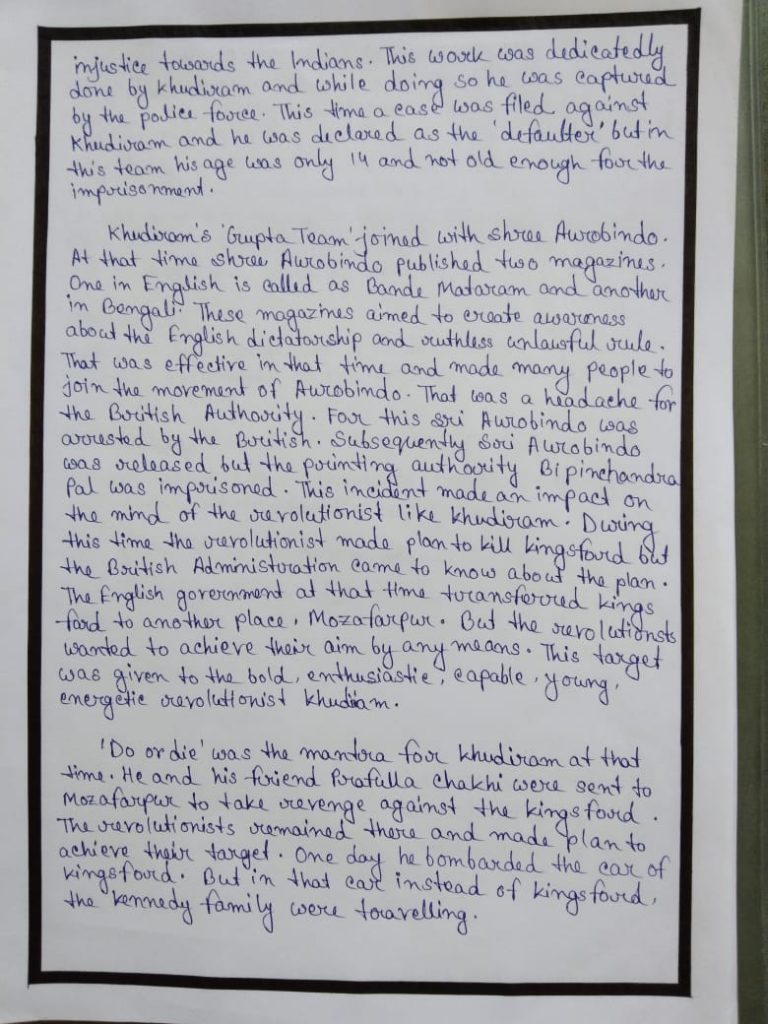 injustice towards the Indians. This work was dedicatedly
done by khudiram and while doing so he was captured
by the police force. This time a case was filed against
Khudiram and he was declared as the 'defaulter' but in
this team his age was only 14 and not old enough for the
imprisonment.
Khudiram's 'Gupta Team' joined with shree Aurobindo.
At that time shree Aurobindo published two magazines.
One in English is called as Bande Mataram and another
in Bengali. These magazines aimed to create awareness
about the English dictatorship and ruthless unlawful rule.
That was effective in that time and made many people to
join the movement of Aurobindo. That was a headache for
the British Authority. For this sri Aurobindo was
arrested by the British. Subsequently Sri Aurobindo
was released but the printing authority Bipinchandra
Pal was imprisoned. This incident made an impact on
the mind of the revolutionist like khudiram. During
this time the revolutionist made plan to kill kingsford but
the British Administration came to know about the plan.
The English government at that time transferred kings
ford to another place, Mozafarpur. But the revolutionsts
wanted to achieve their aim by any means. This target
was given to the bold, enthusiastic, capable, young,
energetic revolutionist khudiam.
'Do or die' was the mantra for khudiram at that
time. He and his friend Prafulla Chakhi were sent to
Mozafarpur to take revenge against the kingsford.
The revolutionists remained there and made plan to
achieve their target. One day he bombarded the car of
kingsford. But in that car instead of kingsford,
the kennedy family were travelling.